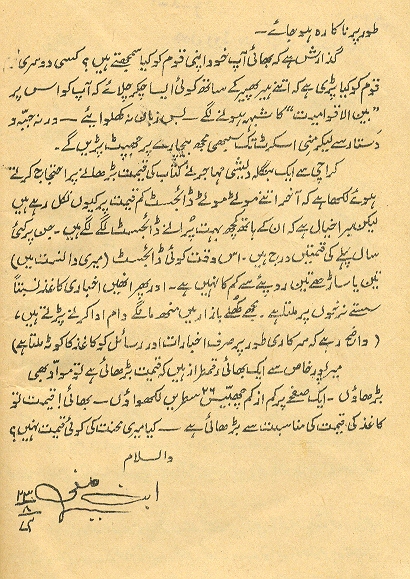 طور پر ناکارہ ہو جائے۔
گذارش ہے کہ بھائی آپ خود اپنی قوم کو کیا سمجھتے ہیں؟ کسی دوسری
قوم کو کیا پڑی ہے کہ اتنے ہیر پھیر کے ساتھ کوئی ایسا چکر چلائے کہ آپ کو اس پر
"بین الاقوامیت" کا شبہ ہونے لگے۔ بس زبان نہ کھلوائیے۔ ورنہ جبّہ و
دستار سے لیکر منی اسکرٹ تک سبھی مجھ بیچارے پر جھپٹ پڑیں گے۔
کراچی سے ایک بنگلہ دیشی مہاجر نے کتاب کی قیمت بڑھانے پر احتجاج کرتے
ہوئے لکھا ہے کہ آخر اتنے موٹے موٹے ڈائجسٹ کم قیمت پر کیوں نکل رہے ہیں
لیکن میرا خیال ہے کہ ان کے ہاتھ کچھ بہت پرانے ڈائجسٹ لگ گئے ہیں۔ جن پر کئی
سال پہلے کی قیمتیں درج ہیں۔ اس وقت کوئی ڈائجسٹ (میری دانست میں)
تین یا ساڑھے تین روپے سے کم کا نہیں ہے۔ اور پھر انھیں اخباری کاغذ نسبتاً
سستے نرخوں پر ملتا ہے۔ مجھے کھلے بازار میں منھ مانگے دام ادا کرنے پڑتے ہیں،
(واضح رہے کہ سرکاری طور پر صرف اخبارات اور رسائل کو کاغذ کا کوٹہ ملتا ہے)
میرپور خاص سے ایک بھائی رقمطراز ہیں کہ قیمت بڑھائی ہے تو مواد بھی
بڑھاؤں۔ ایک صفحے پر کم از کم چھبیس ۲۶ سطریں لکھواؤں۔ بھائی! قیمت تو
کاغذ کی قیمت کی مناسبت سے بڑھائی ہے۔ کیا میری محنت کی کوئی قیمت نہیں؟
والسلام
ابن صفی
۲۳
۸
۷۲